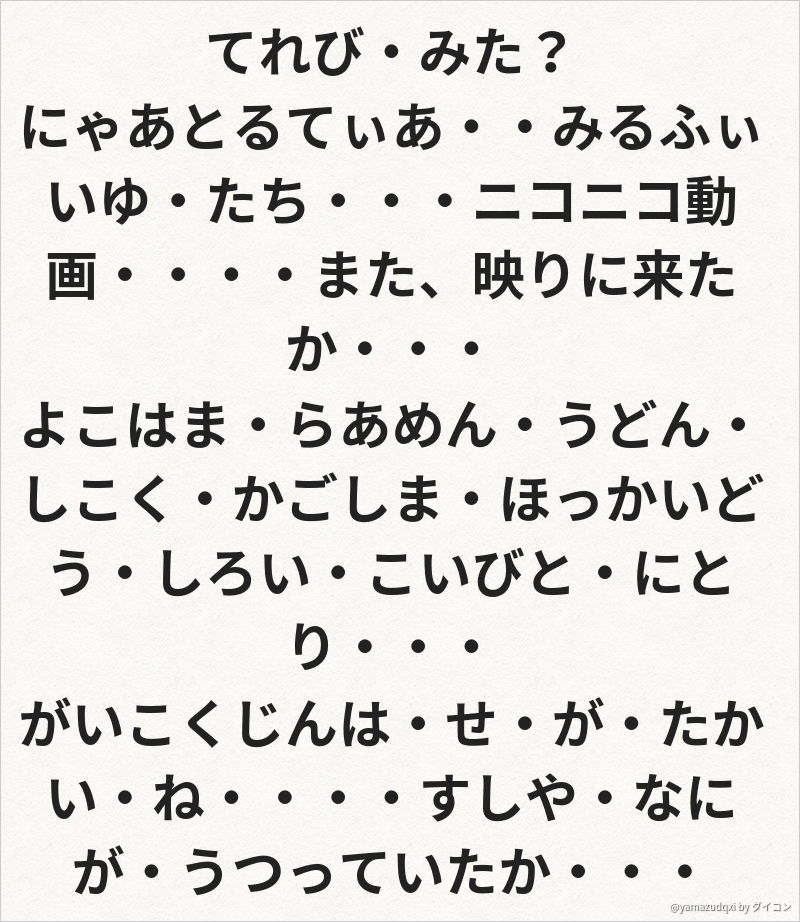 てれび・みた？
にゃあとるてぃあ・・みるふぃ
いゆ・たち・・・ニコニコ動
画・・・・また、映りに来た
か・・・
よこはま・らあめん・うどん・
しこく・かごしま・ほっかいど
う・しろい・こいびと・にと
り・・・
がいこくじんは・せ・が・たか
い・ね・・・・すしや・なに
が・うつっていたか・・・
@yamazudqxi by ダイコン